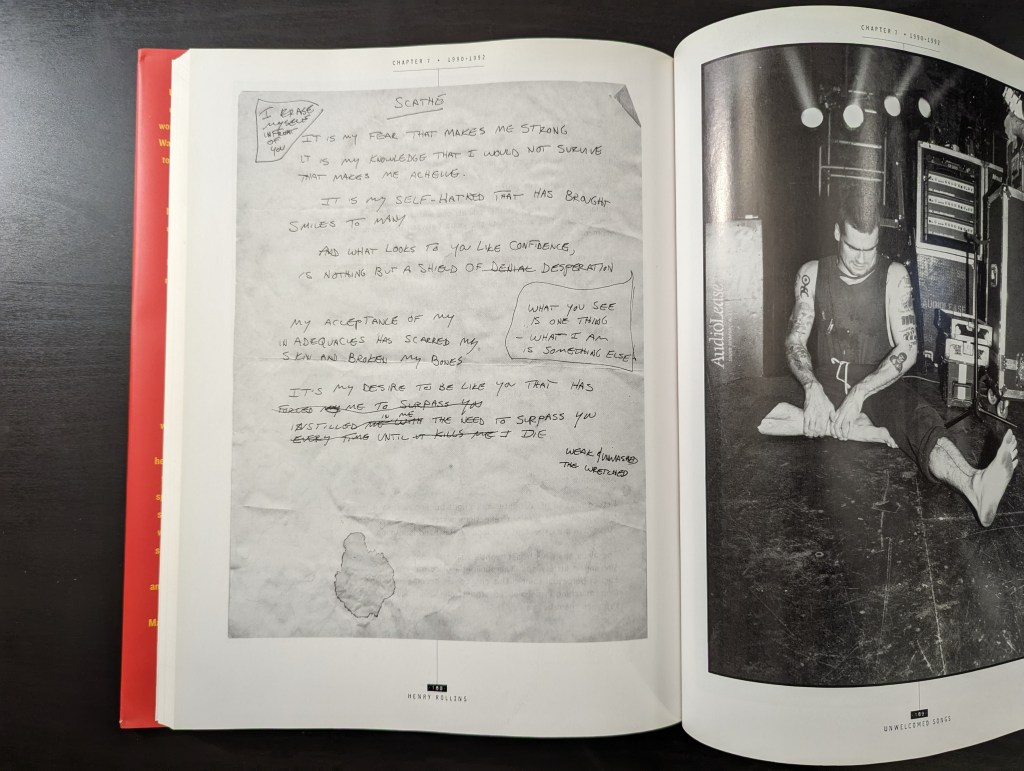 CHAPTER 7 • 1990-1992
SCATHE
I ERASE
MYSELF
IN FRONT
OF
YOU
IT IS MY FEAR THAT MAKES ME STRONG
IT IS MY KNOWLEDGE THAT I WOULD NOT SURVIVE
THAT MAKES ME ACHEIVE.
IT IS MY SELF-HATRED THAT HAS BROUGHT
SMILES TO MANY
AND WHAT LOOKS TO YOU LIKE CONFIDENCE,
IS NOTHING BUT A SHIELD OF DENIAL DESPERATION
WHAT YOU SEE
IS ONE THING
- WHAT I AM
IS SOMETHING ELSE
MY ACCEPTANCE OF MY
INADEQUACIES HAS SCARRED MY
SKIN AND BROKEN MY BONES
IT'S MY DESIRE TO BE LIKE YOU THAT HAS
FORCED ME TO SURPASS YOU
IN ME
INSTILLED ME WITH THE NEED TO SURPASS YOU
EVERY TIME UNTIL IT KILLS ME I DIE
WEAK & UNWASHED
THE WRETCHED
HENRY ROLLINS
CHAPTER 7 • 1990-1992
AudioLease
AUDIOLEASE
UNWELCOMED SONGS